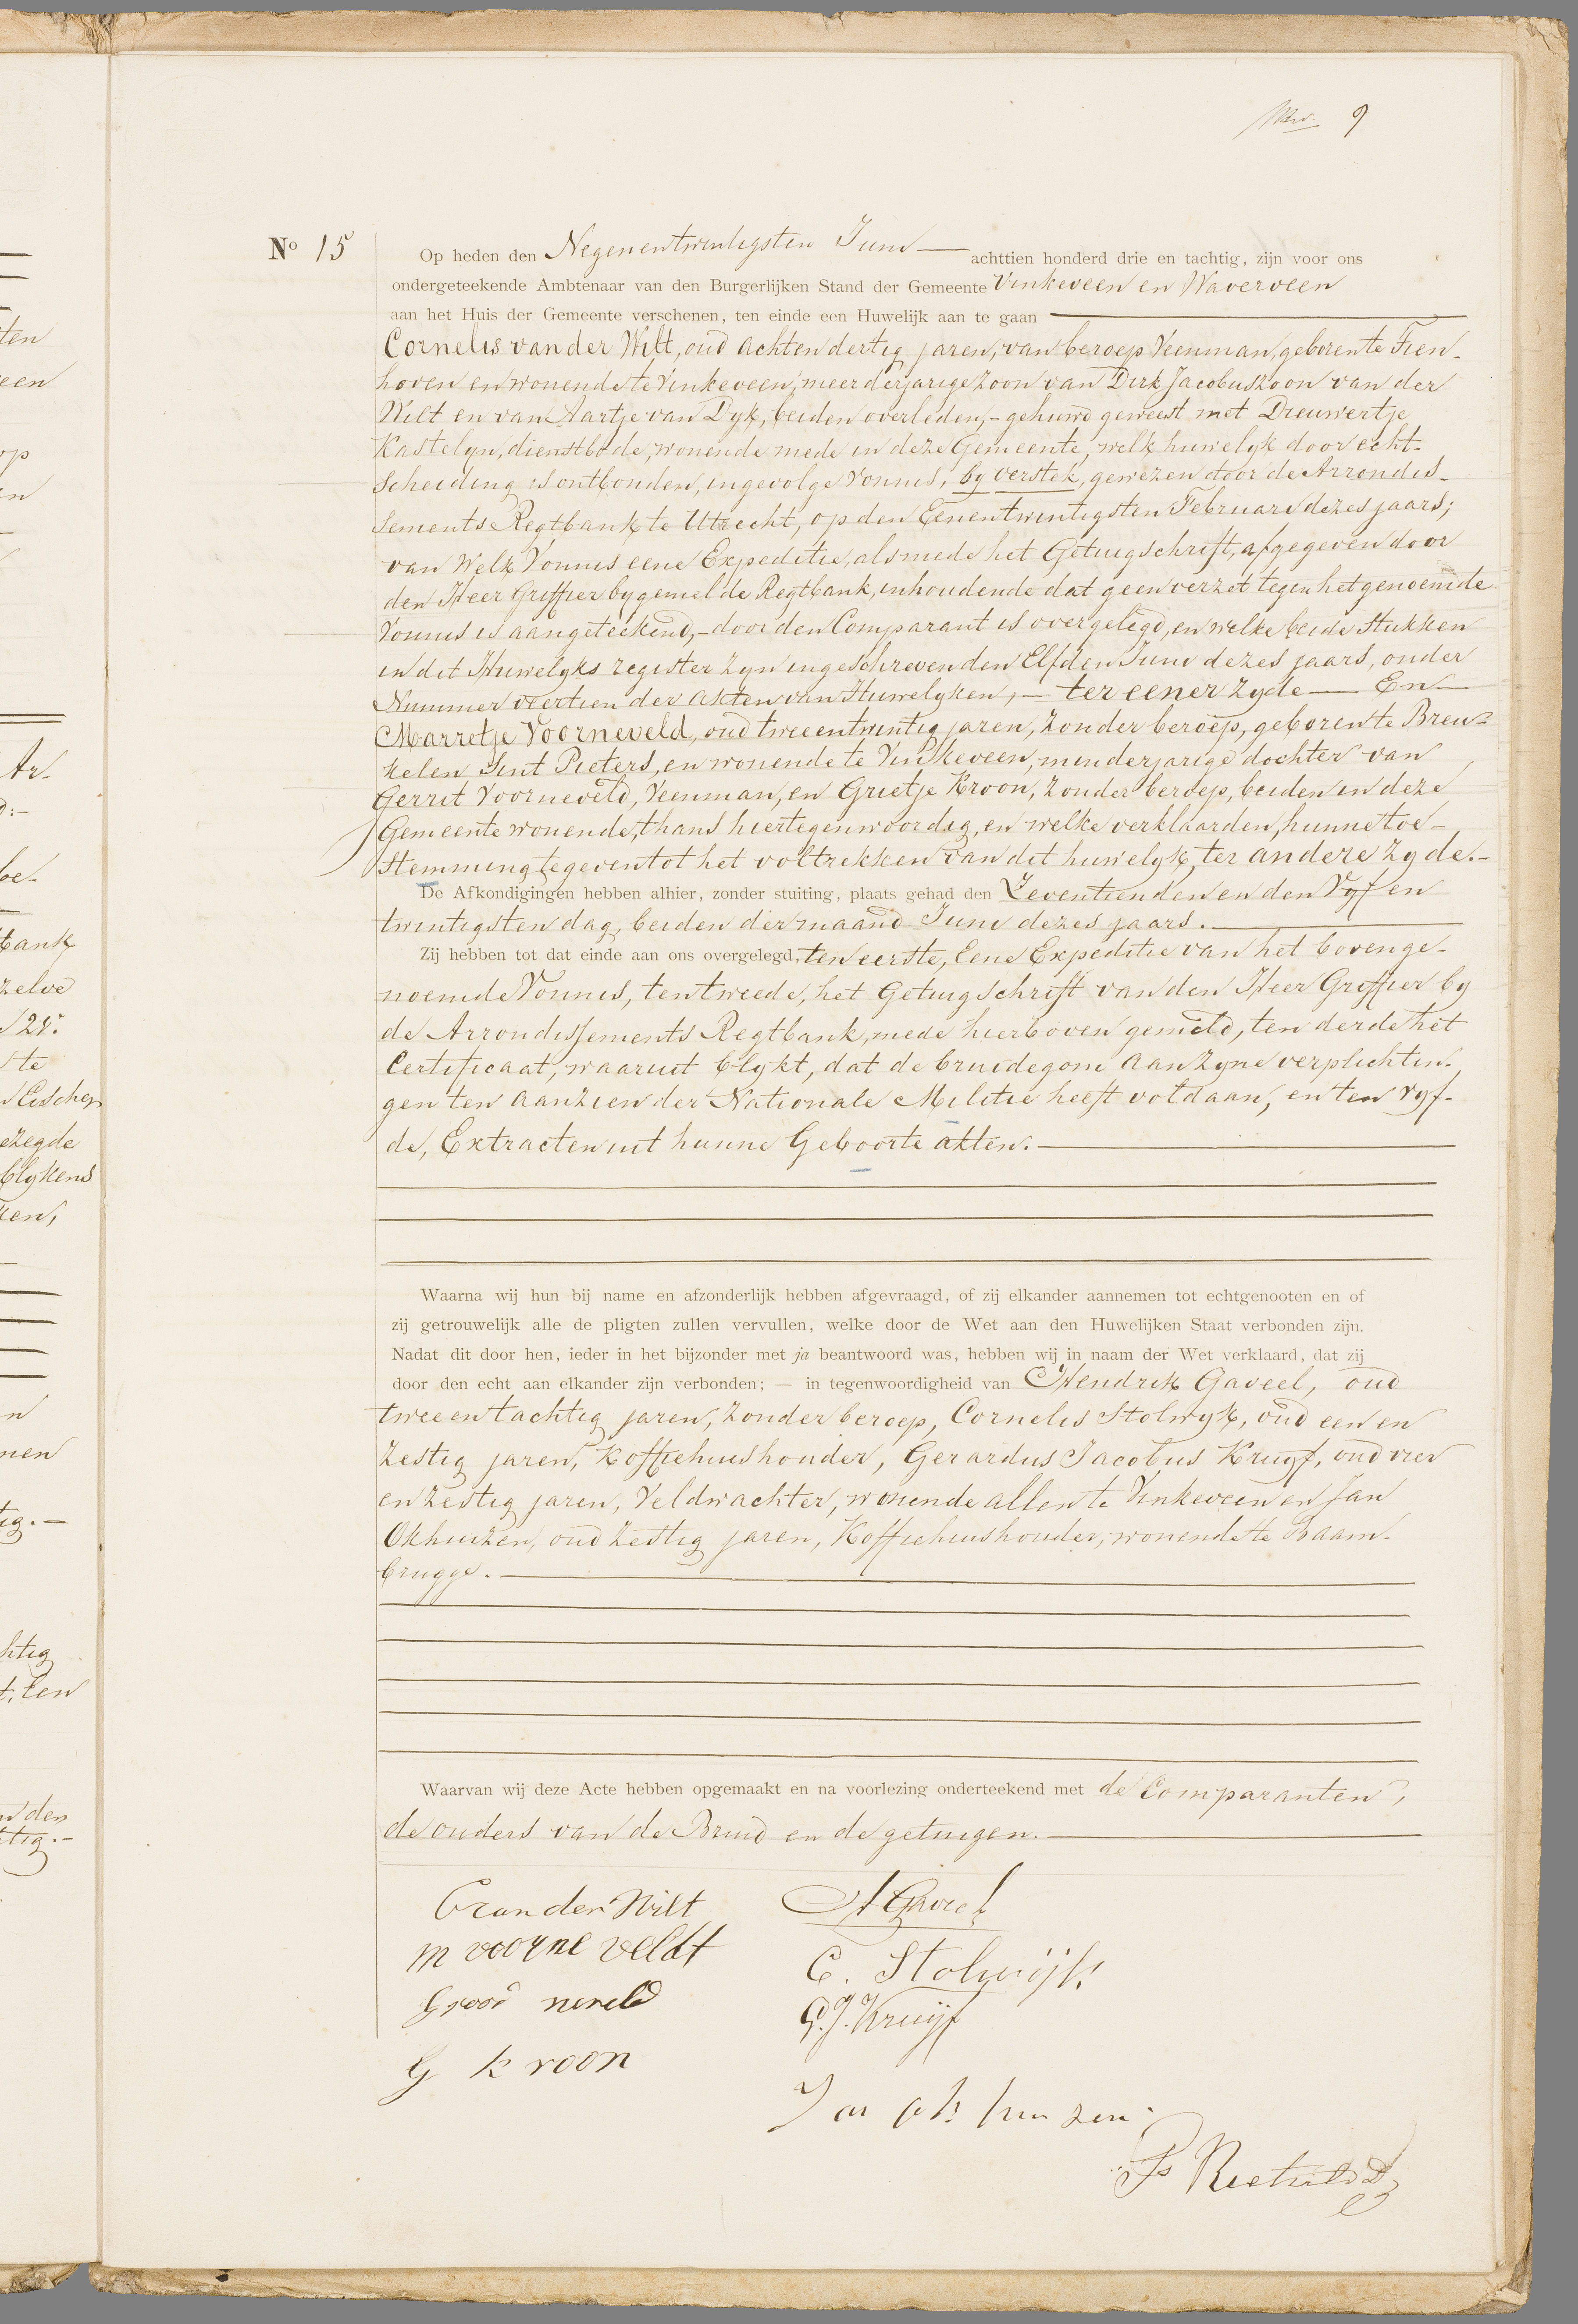 9
Nº 15
Op heden den Negenentwintigsten Juni achttien honderd drie en tachtig, zijn voor ons
ondergeteekende Ambtenaar van den Burgerlijken Stand der Gemeente Vinkeveen en Waverveen
aan het Huis der Gemeente verschenen, ten einde een Huwelijk aan te gaan
Cornelis van der Wilt, oud achtendertig jaren, van beroep Veenman, geboren te Tien-
hoven en wonende te Vinkeveen, meerderjarige zoon van Dirk Jacobuszoon van der
Wilt en van Aartje van Dyk, beiden overleden, - gehuwd geweest met Dieuwertje
Kastelyn, dienstbode, wonende mede in deze Gemeente, welk huwelyk door echt-
scheiding is ontbonden, ingevolge vonnis, by verstek, gewezen door de Arrondis-
sements Regtbank te Utrecht, op den Eenentwintigsten Februari dezes jaars;
van Welk Vonnis eene Expeditie, alsmede het Getuigschrift, afgegeven door
den Heer Griffier by gemelde Regtbank, inhoudende dat geen verzet tegen het genoemde
Vonnis is aangeteekend, - door den Comparant is overgelegd, en welke beide stukken
in dit Huwelyks register zyn ingeschreven den Elfden Juni dezes jaars, onder
Nummer veertien der akten van Huwelyken, - ter eener zyde - En -
Marretje Voorneveld, oud tweeentwintig jaren, zonder beroep, geboren te Breu-
kelen Sint Pieters, en wonende te Vinkeveen, minderjarige dochter van
Gerrit Voorneveld, Veenman, en Grietje Kroon, zonder beroep, beiden in deze
Gemeente wonende, thans hiertegenwoordig, en welke verklaarden, hunne toe-
stemming te geven tot het voltrekken van dit huwelyk, ter andere zyde. -
De Afkondigingen hebben alhier, zonder stuiting, plaats gehad den Zeventienden en den Vyf en
twintigsten dag, beiden der maand Juni dezes jaars.
Zij hebben tot dat einde aan ons overgelegd, ten eerste, Eene Expeditie van het bovenge-
noemde Vonnis, ten tweede, het Getuigschrift van den Heer Griffier by
de Arrondissements Regtbank, mede hierboven gemeld, ten derde het
Certificaat, waaruit blykt, dat de bruidegom aan zyne verplichtin-
gen ten aanzien der Nationale Militie heeft voldaan, en ten vyf-
de, Extracten uit hunne Geboorte akten.
Waarna wij hun bij name en afzonderlijk hebben afgevraagd, of zij elkander aannemen tot echtgenooten en of
zij getrouwelijk alle de pligten zullen vervullen, welke door de Wet aan den Huwelijken Staat verbonden zijn.
Nadat dit door hen, ieder in het bijzonder met ja beantwoord was, hebben wij in naam der Wet verklaard, dat zij
door den echt aan elkander zijn verbonden; — in tegenwoordigheid van Hendrik Gaveel, oud
tweeentachtig jaren, zonder beroep, Cornelis Stolwyk, oud een en
zestig jaren, Koffiehuishouder, Gerardus Jacobus Kruyf, oud vier
en zestig jaren, Veldwachter, wonende allen te Vinkeveen en Jan
Okhuizen, oud zestig jaren, Koffiehuishouder, wonende te Baam-
brugge.
Waarvan wij deze Acte hebben opgemaakt en na voorlezing onderteekend met de Comparanten,
de ouders van de Bruid en de getuigen.
C van der Wilt
H Gaveel
m voorne veldt
C. Stolwijk
G voor neveld
G.J. Kruijf
G kroon
Jan ok huizen